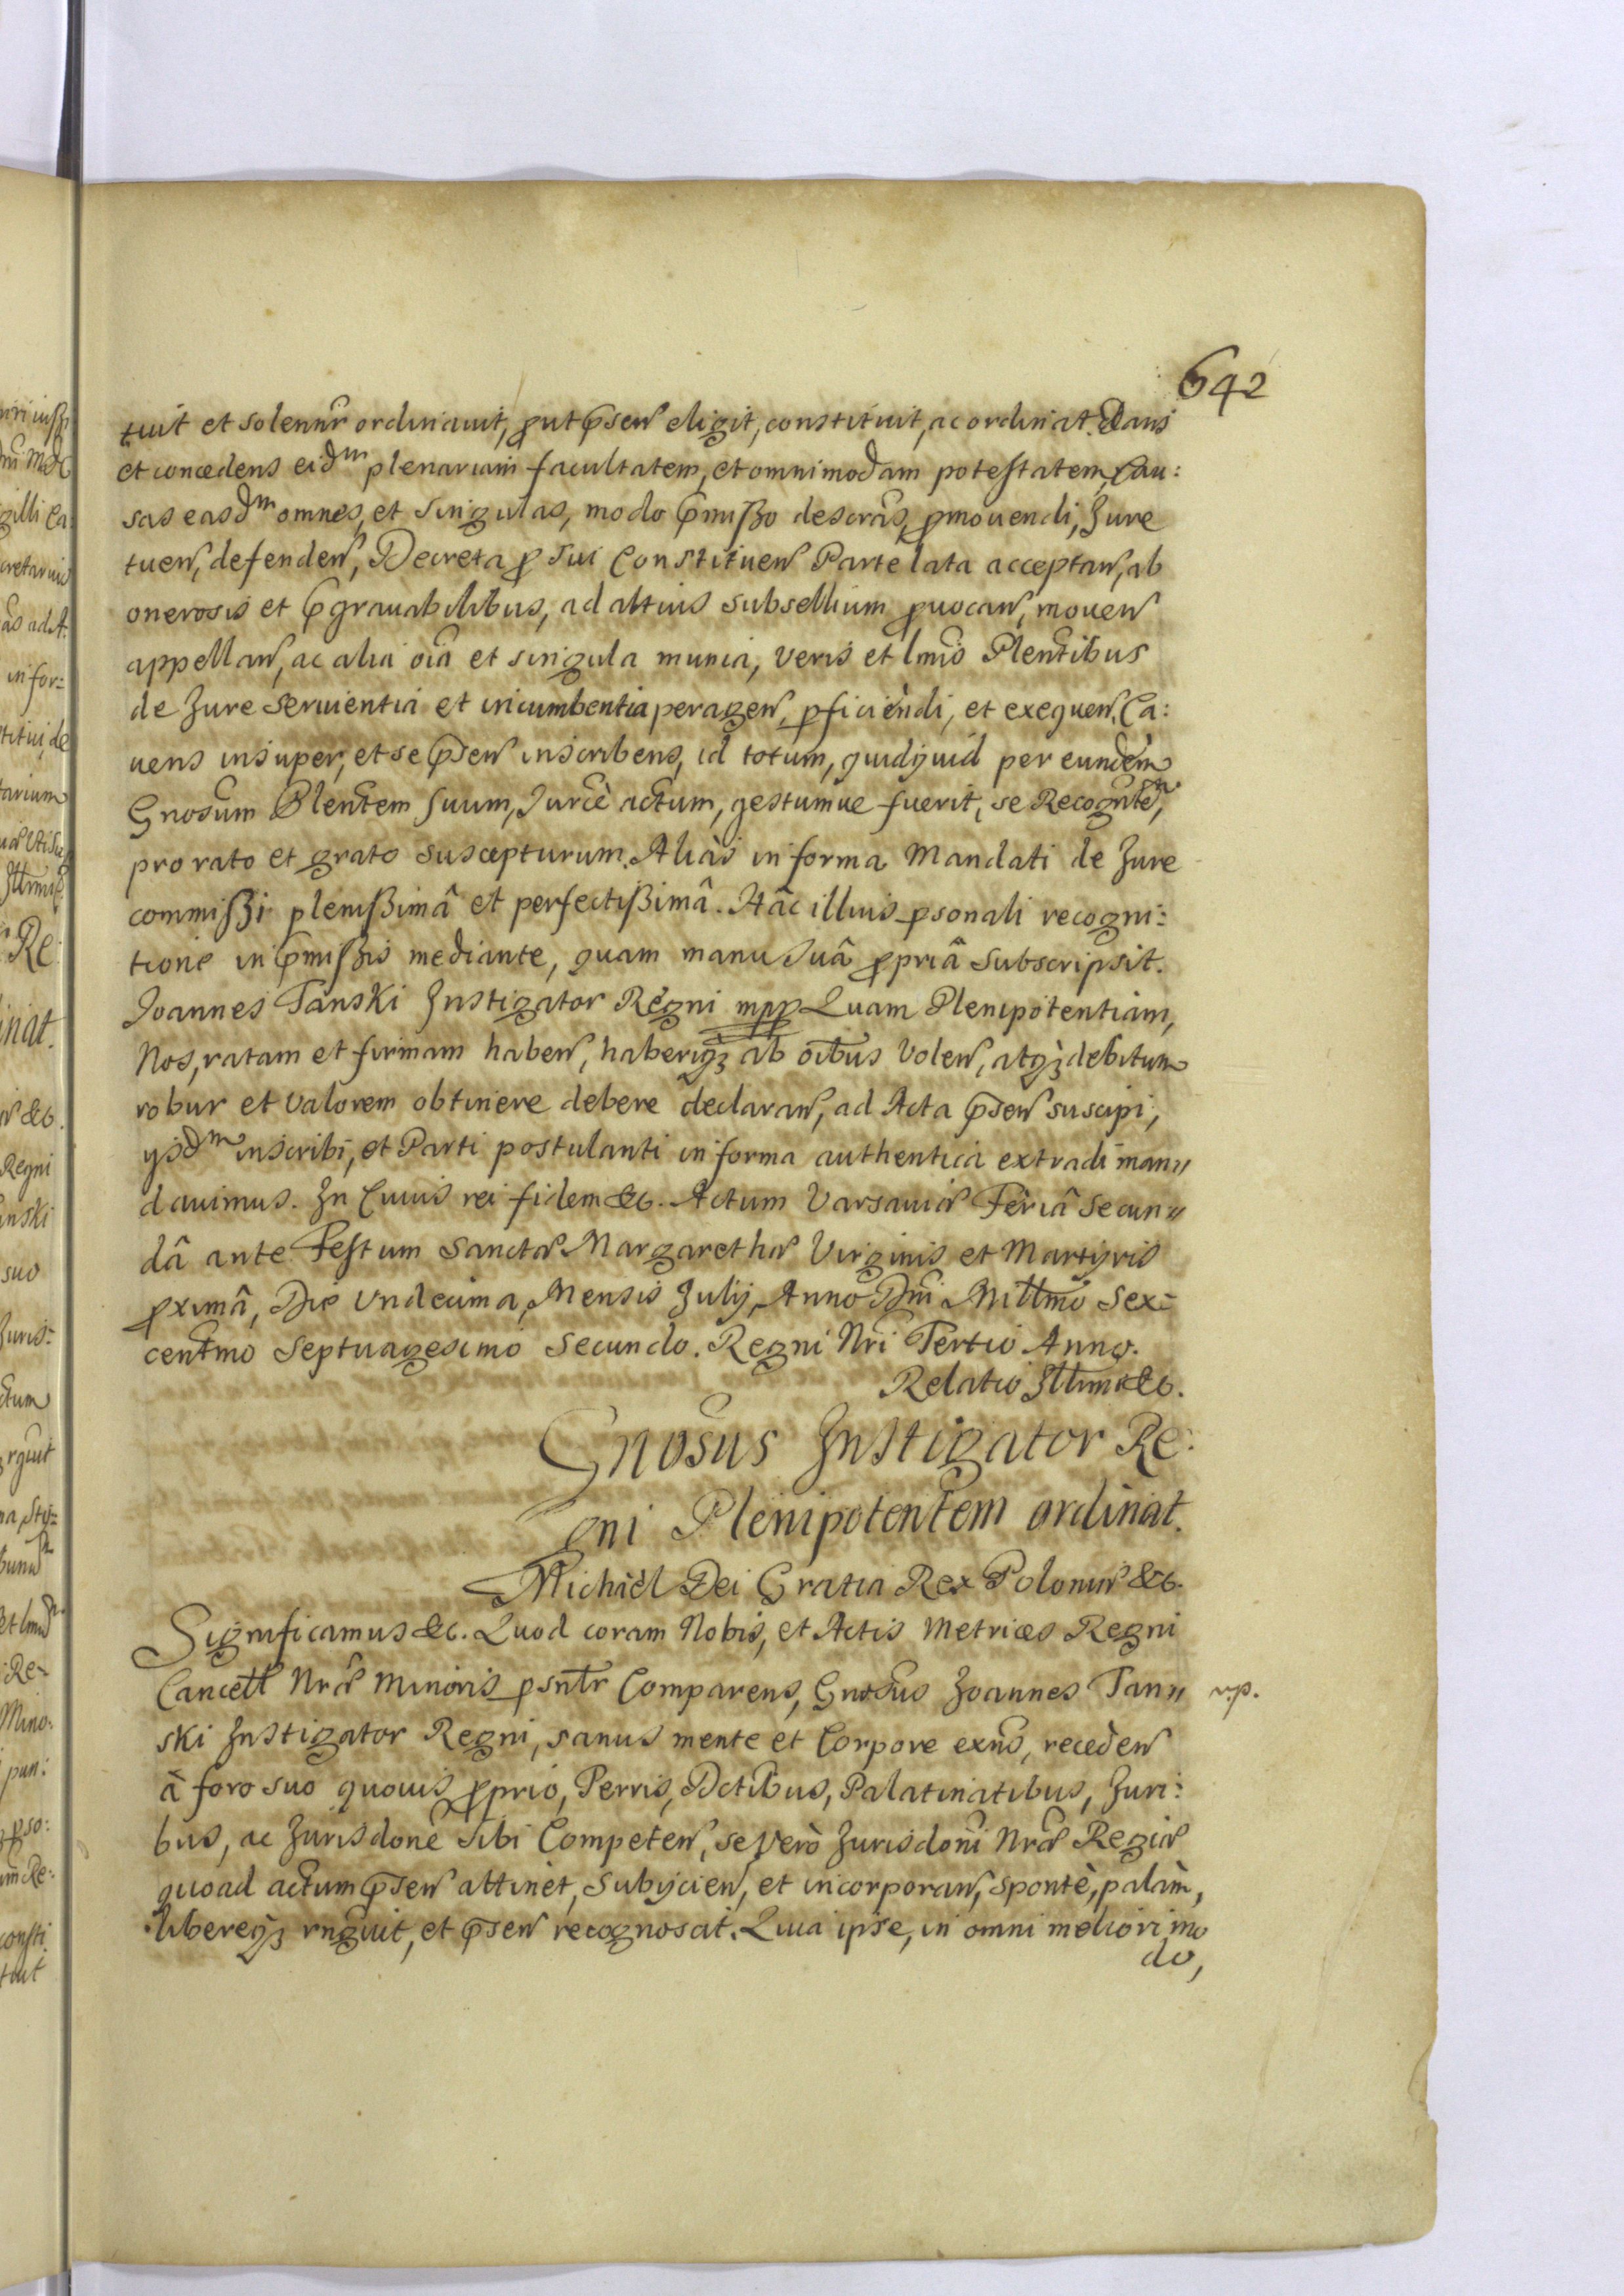 642
tuit et solennr ordinauit, prout psen eligit, constituit, ac ordinat. Dans
et concedens eidm plenariam facultatem, et omnimodam potestatem, Cau:
sas easdm omnes, et singulas, modo pmißo descras, pmouendi, Jure
tuen, defenden, Decreta p sui Constituen Parte lata acceptan, ab
onerosis et pgrauabilibus, ad altius subsellium puocan, mouen
appellan, ac alia oia et singula munia, veris et lmis Plentibus
de Jure seruientia et incumbentia peragen, pficiendi, et exequen. Ca:
uens insuper, et se psen inscribens, id totum, quidquid per eundem
Gnosum Plentem suum, Jurce actum, gestumue fuerit, se Recognte,
pro rato et grato suscepturum. Alias in forma Mandati de Jure
commißi plenißimâ et perfectißimâ. Hâc illius psonali recogni:
tione in pmißis mediante, quam manu suâ ppriâ subscripsit.
Joannes Tanski Instigator Regni mpp Quam Plenipotentiam,
Nos, ratam et firmam haben, haberiq3 ab oibus volen, atq3 debitum
robur et valorem obtinere debere declaran, ad Acta psen suscipi,
ijsdm inscribi, et Parti postulanti in forma authentica extradi man„
dauimus. In Cuius rei fidem &c. Actum Varsauiæ Feriâ Secun„
dâ ante Festum Sanctæ Margarethæ Virginis et Martyris
pximâ, Die Undecima, Mensis Julij, Anno Dni Millmo Sex:
centmo Septuagesimo Secundo. Regni Nri Tertio Anno.
Relatio Illimi &c.
Gnosus Instigator Re:
gni Plenipotentem ordinat.
Michaël Dei Gratia Rex Poloniæ &c.
Significamus &c. Quod coram Nobis, et Actis Metrices Regni
Cancell Nræ Minoris psntr Comparens, Gnosus Joannes Tan„ r.p.
ski Instigator Regni, sanus mente et Corpore exns, receden
â foro suo quouis pprio, Terris, Dctibus, Palatinatibus, Juri:
bus, ac Jurisdone sibi Competen, se vero Jurisdoni Nræ Regiæ
quoad actum psen attinet, subijcien, et incorporan, sponte, palàm,
libereq3 rnguit, et psen recognoscit. Quia ipse, in omni meliori mo
do,